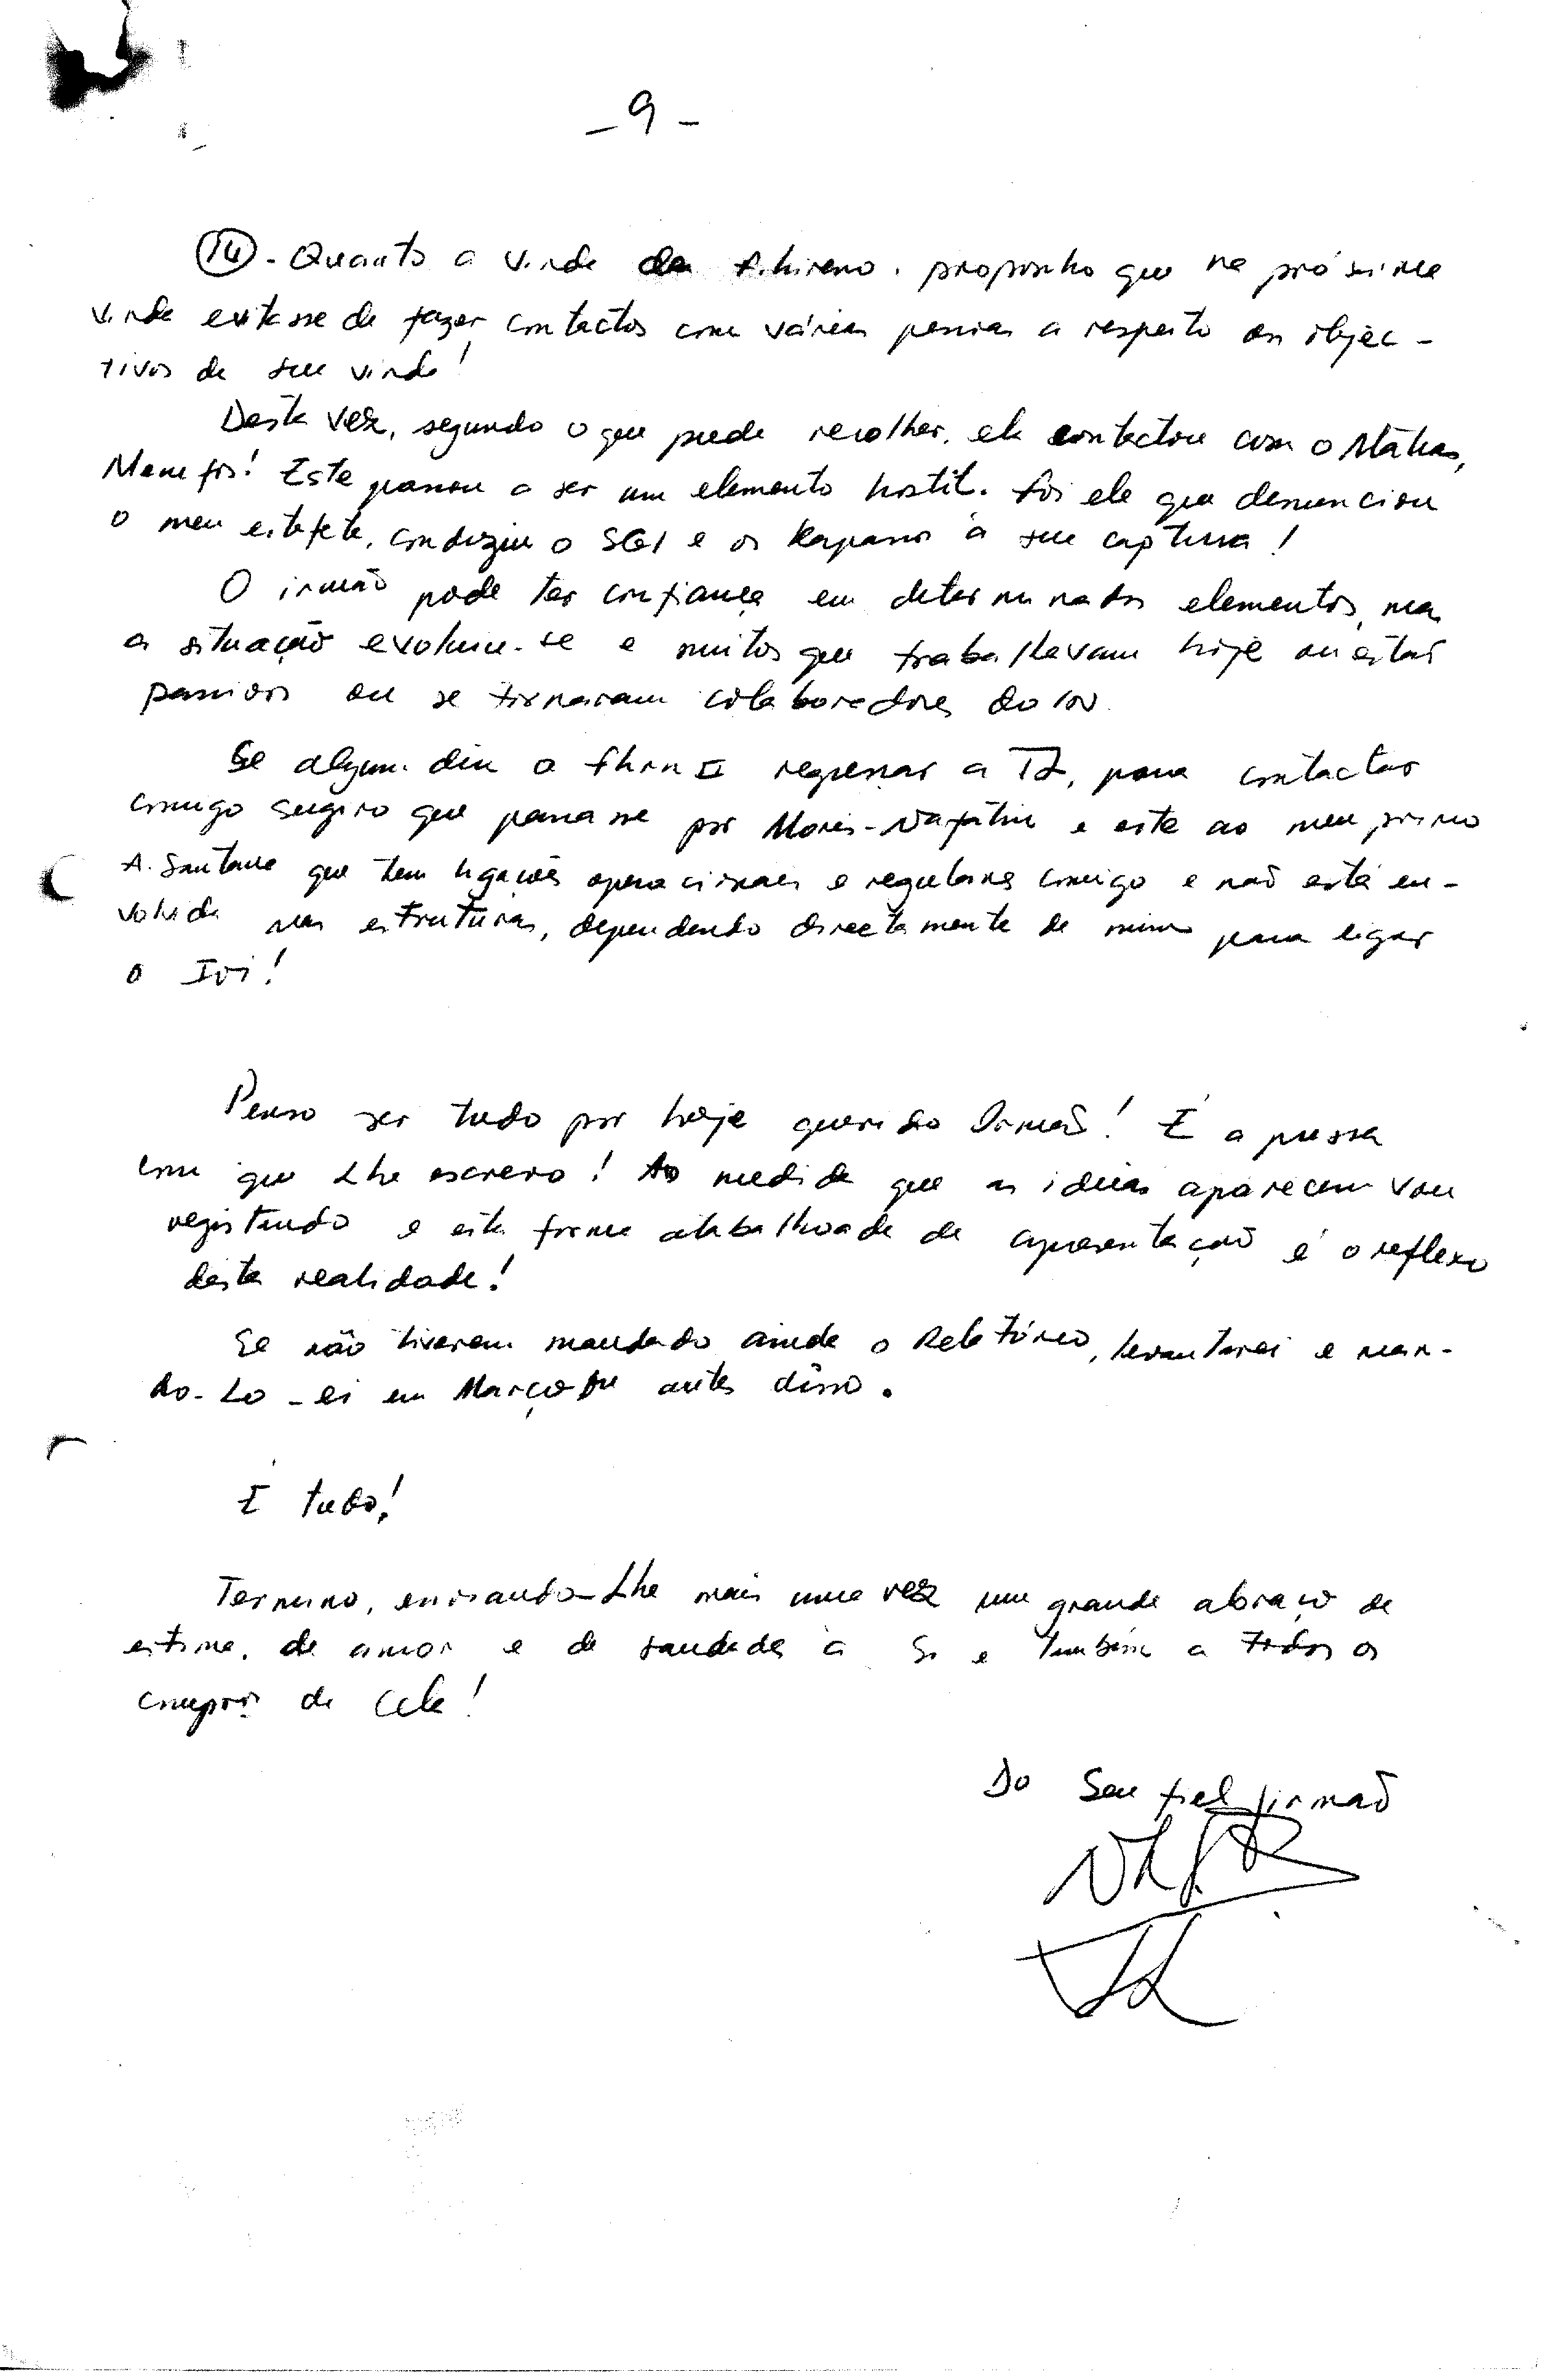 - 9 -
14 - Quanto a vinda da proponho que na próxima
vinda evitasse de fazer contactos com várias pessoas a respeito os objec-
tivos de sua vinda!
Desta vez, segundo o que pude recolher, ele contactou com o Mátias,
Este passou a ser um elemento hostil. Foi ele que denunciou
o meu estafeta, conduziu o SGI e os à sua captura!
O irmão pode ter confiança em determinados elementos, mas
a situação evoluiu-se e muitos que trabalhavam hoje ou estão
passivos ou se tornaram colaboradores do IN.
Se algum dia o regressar a TL, para contactar
comigo sugiro que passasse por e este ao meu primo
A. Santana que tem ligações operacionais e regulares comigo e não está en-
volvido nas estruturas, dependendo directamente de mim para ligar
o
Penso ser tudo por hoje querido Irmão! É a pressa
com que Lhe escrevo! Ao medida que as ideias aparecem vou
registando e esta forma atabalhoada de apresentação é o reflexo
desta realidade!
Se não tiverem mandado ainda o Relatório, levantarei e man-
do-Lo-ei em Março ou antes disso.
É tudo!
Termino, enviando-Lhe mais uma vez um grande abraço de
estima, de amor e de saudades a Si e também a todos os
compós de Cela!
Do Seu fiel irmão